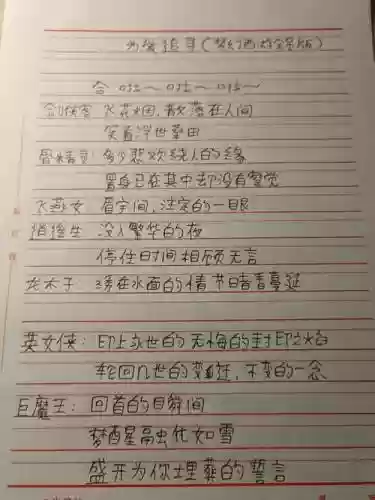 为爱追寻(梦幻西游全员版)
合 哇~ 哇~ 哇~
剑侠客: 飞花烟, 散落在人间
笑看浮世桑田
骨精灵: 多少悲欢绕人的缘
置身已在其中却没有察觉
飞燕女: 眉宇间, 注定的一眼
逍遥生: 没入繁华的夜
停住时间相顾无言
龙太子: 在水面的情节暗暗蔓延
英女侠: 印上永世的无悔的封印之焰
轮回几世的变迁, 不变的一念
巨魔王: 回首的目瞬间
梦醒星融化如雪
盛开为你埋葬的誓言